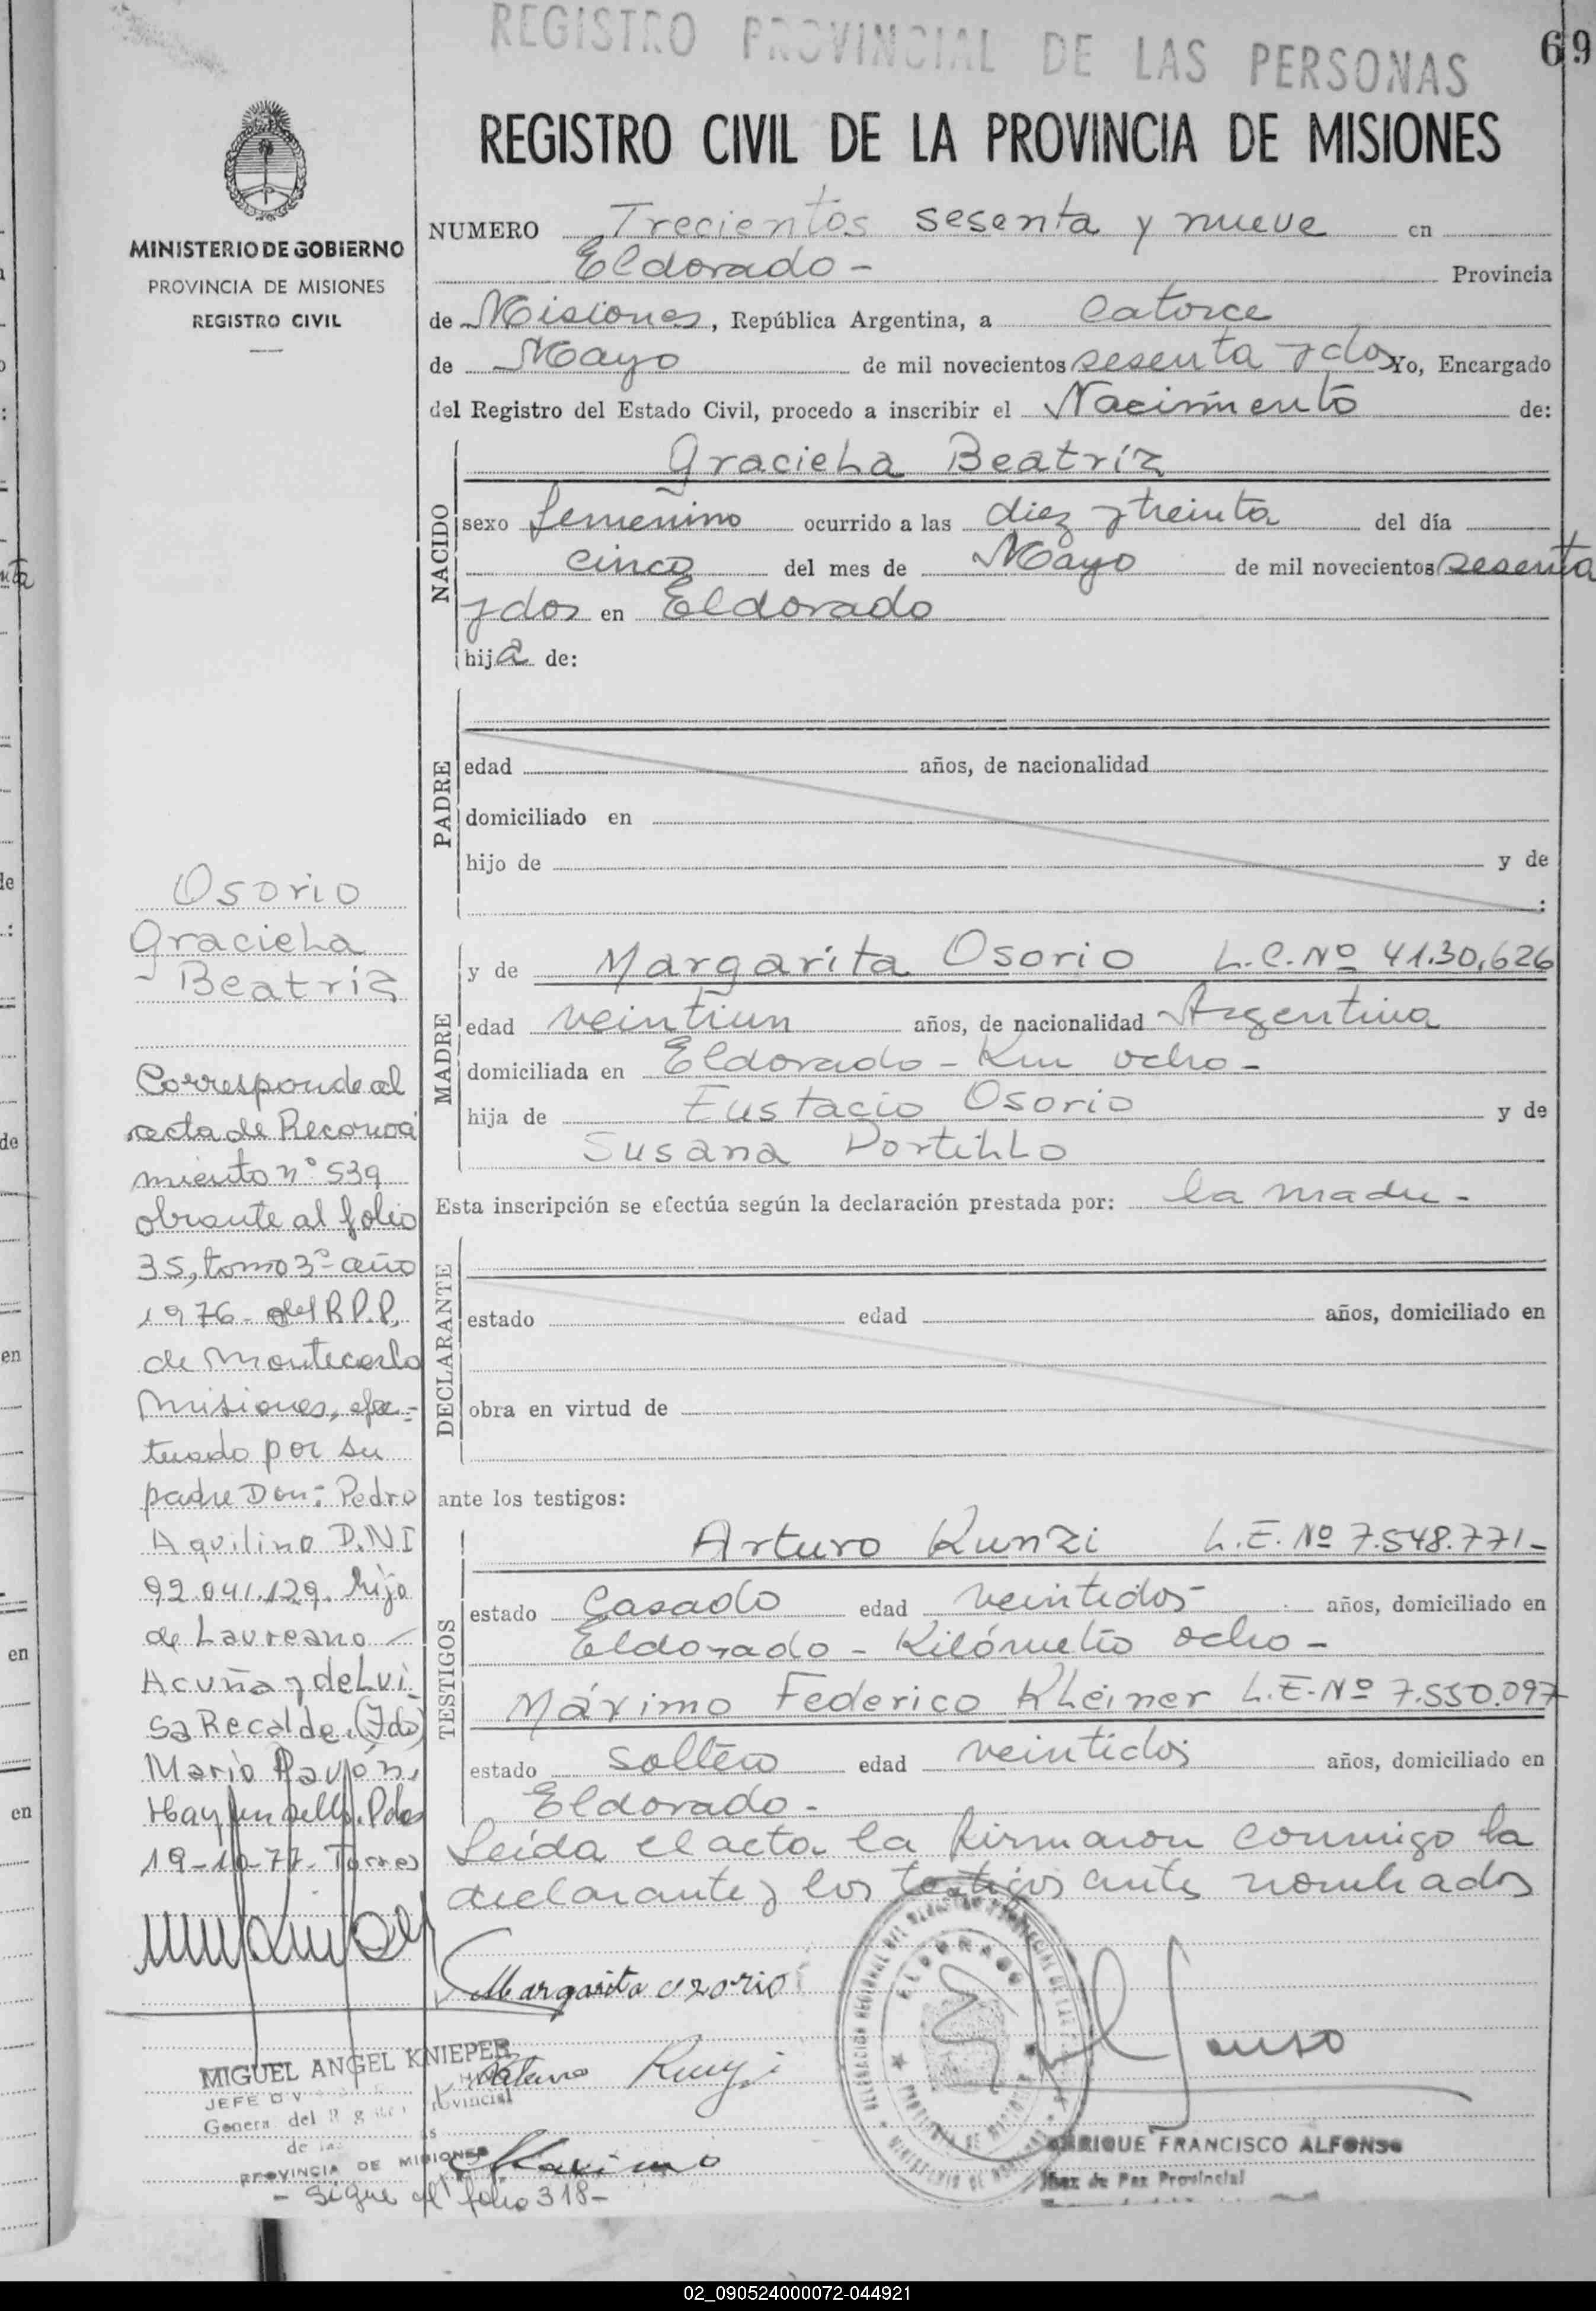 REGISTRO PROVINCIAL DE LAS PERSONAS
69
REGISTRO CIVIL DE LA PROVINCIA DE MISIONES
MINISTERIO DE GOBIERNO
PROVINCIA DE MISIONES
REGISTRO CIVIL
NUMERO Trecientos sesenta y nueve en
Eldorado - Provincia
de Misiones, República Argentina, a Catorce
de Mayo de mil novecientos sesenta y dos Yo, Encargado
del Registro del Estado Civil, procedo a inscribir el Nacimiento de:
NACIDO
Graciela Beatriz
sexo femenino ocurrido a las diez y treinta del día
cinco del mes de Mayo de mil novecientos sesenta
y dos en Eldorado
hija de:
PADRE
edad años, de nacionalidad
domiciliado en
hijo de y de
:
MADRE
y de Margarita Osorio L.C. Nº 41.30.626
edad veintiun años, de nacionalidad Argentina
domiciliada en Eldorado - Km ocho -
hija de Eustacio Osorio y de
Susana Portillo
Esta inscripción se efectúa según la declaración prestada por: la madre -
DECLARANTE
estado edad años, domiciliado en
obra en virtud de
ante los testigos:
TESTIGOS
Arturo Kunzi L.E. Nº 7.548.771-
estado Casado edad veintidos - años, domiciliado en
Eldorado - Kilómetro ocho -
Máximo Federico Kleiner L.E. Nº 7.550.097
estado soltero edad veintidos años, domiciliado en
Eldorado -
Leida el acta la firmaron conmigo la
declarante y los testigos antes nombrados
Osorio
Graciela
- Beatriz
Corresponde al
acta de Reconoci
miento nº 539
obrante al folio
35, tomo 3º año
1976 - del R.P.P.
de Montecarlo
Misiones, efec-
tuado por su
padre Don: Pedro
Aquilino D.N.I
92.041.129. hijo
de Laureano
Acuña y de Lui
sa Recalde. (Fdo)
Mario Pavón.
Hay un sello. Pdas
19-10-77. Torres
Margarita Ozorio
Arturo Kunzi
Maximo
MIGUEL ANGEL KNIEPER
JEFE DIV
General del Registro Provincial
de las
PROVINCIA DE MISIONES
- Sigue al folio 318-
ELDORADO
ENRIQUE FRANCISCO ALFONSO
Juez de Paz Provincial
02_090524000072-044921